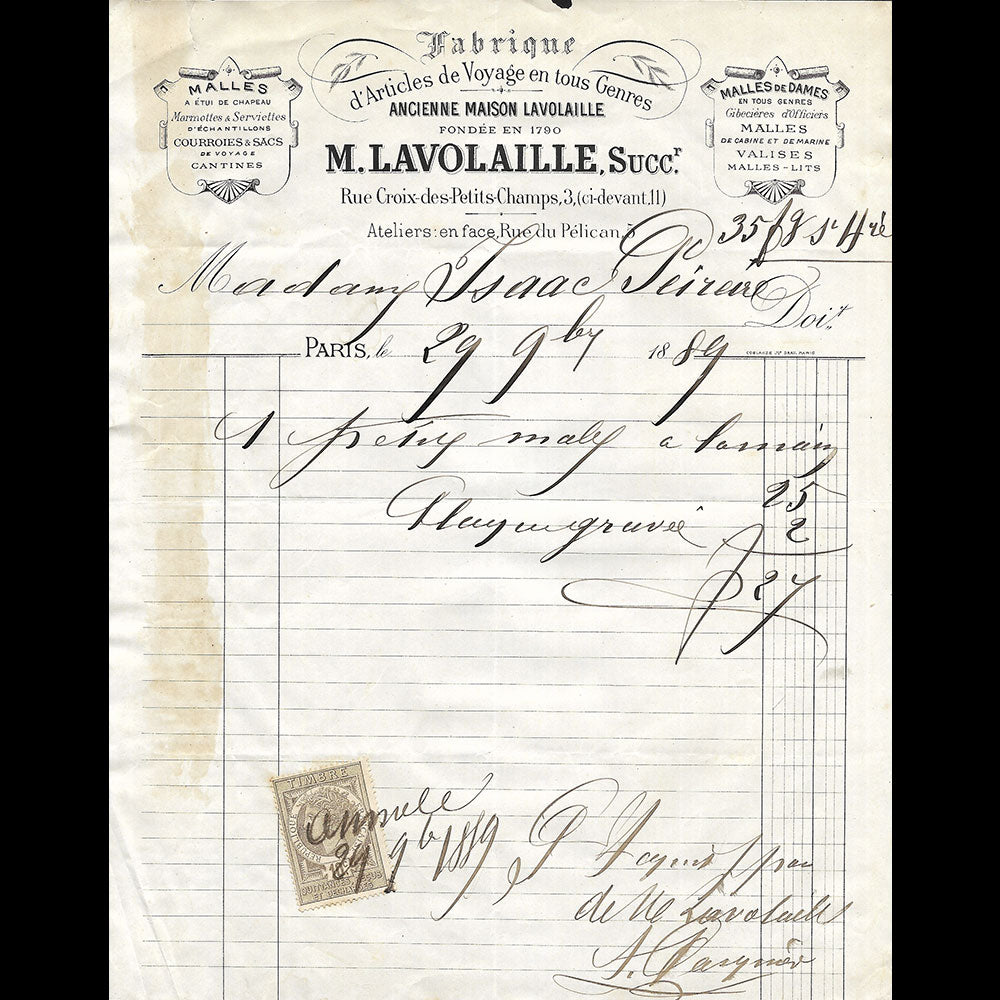 Fabrique
d'Articles de Voyage en tous Genres
ANCIENNE MAISON LAVOLAILLE
FONDÉE EN 1790
M. LAVOLAILLE, Succr.
Rue Croix-des-Petits-Champs, 3, (ci-devant, 11)
Ateliers: en face, Rue du Pélican, 3
MALLES
A ÉTUI DE CHAPEAU
Marmottes & Serviettes
D'ÉCHANTILLONS
COURROIES & SACS
DE VOYAGE
CANTINES
MALLES DE DAMES
EN TOUS GENRES
Gibecières d'Officiers
MALLES
DE CABINE ET DE MARINE
VALISES
MALLES-LITS
35 fg St H ré
Madame Isaac Péreire
Doit
PARIS, le 29 9bre 1889
1 petite malle a la main
25
Plaque gravée 2
27
TIMBRE
RÉPUBLIQUE
QUITTANCES, REÇUS
ET DÉCHARGES
annulé
29 9b 1889
P Acquit
de M Lavolaille